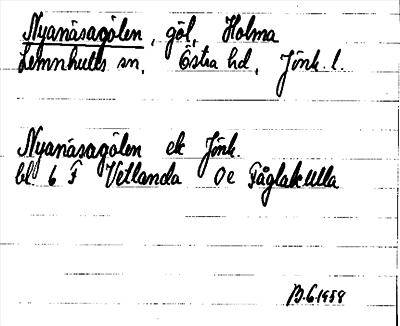 Nyanäsagölen, göl, Holma
Lemnhults sn, Östra hd, Jönk l.
Nyanäsagölen ek Jönk.
bl 6 F Vetlanda 0e Fåglakulla
B.G.1958